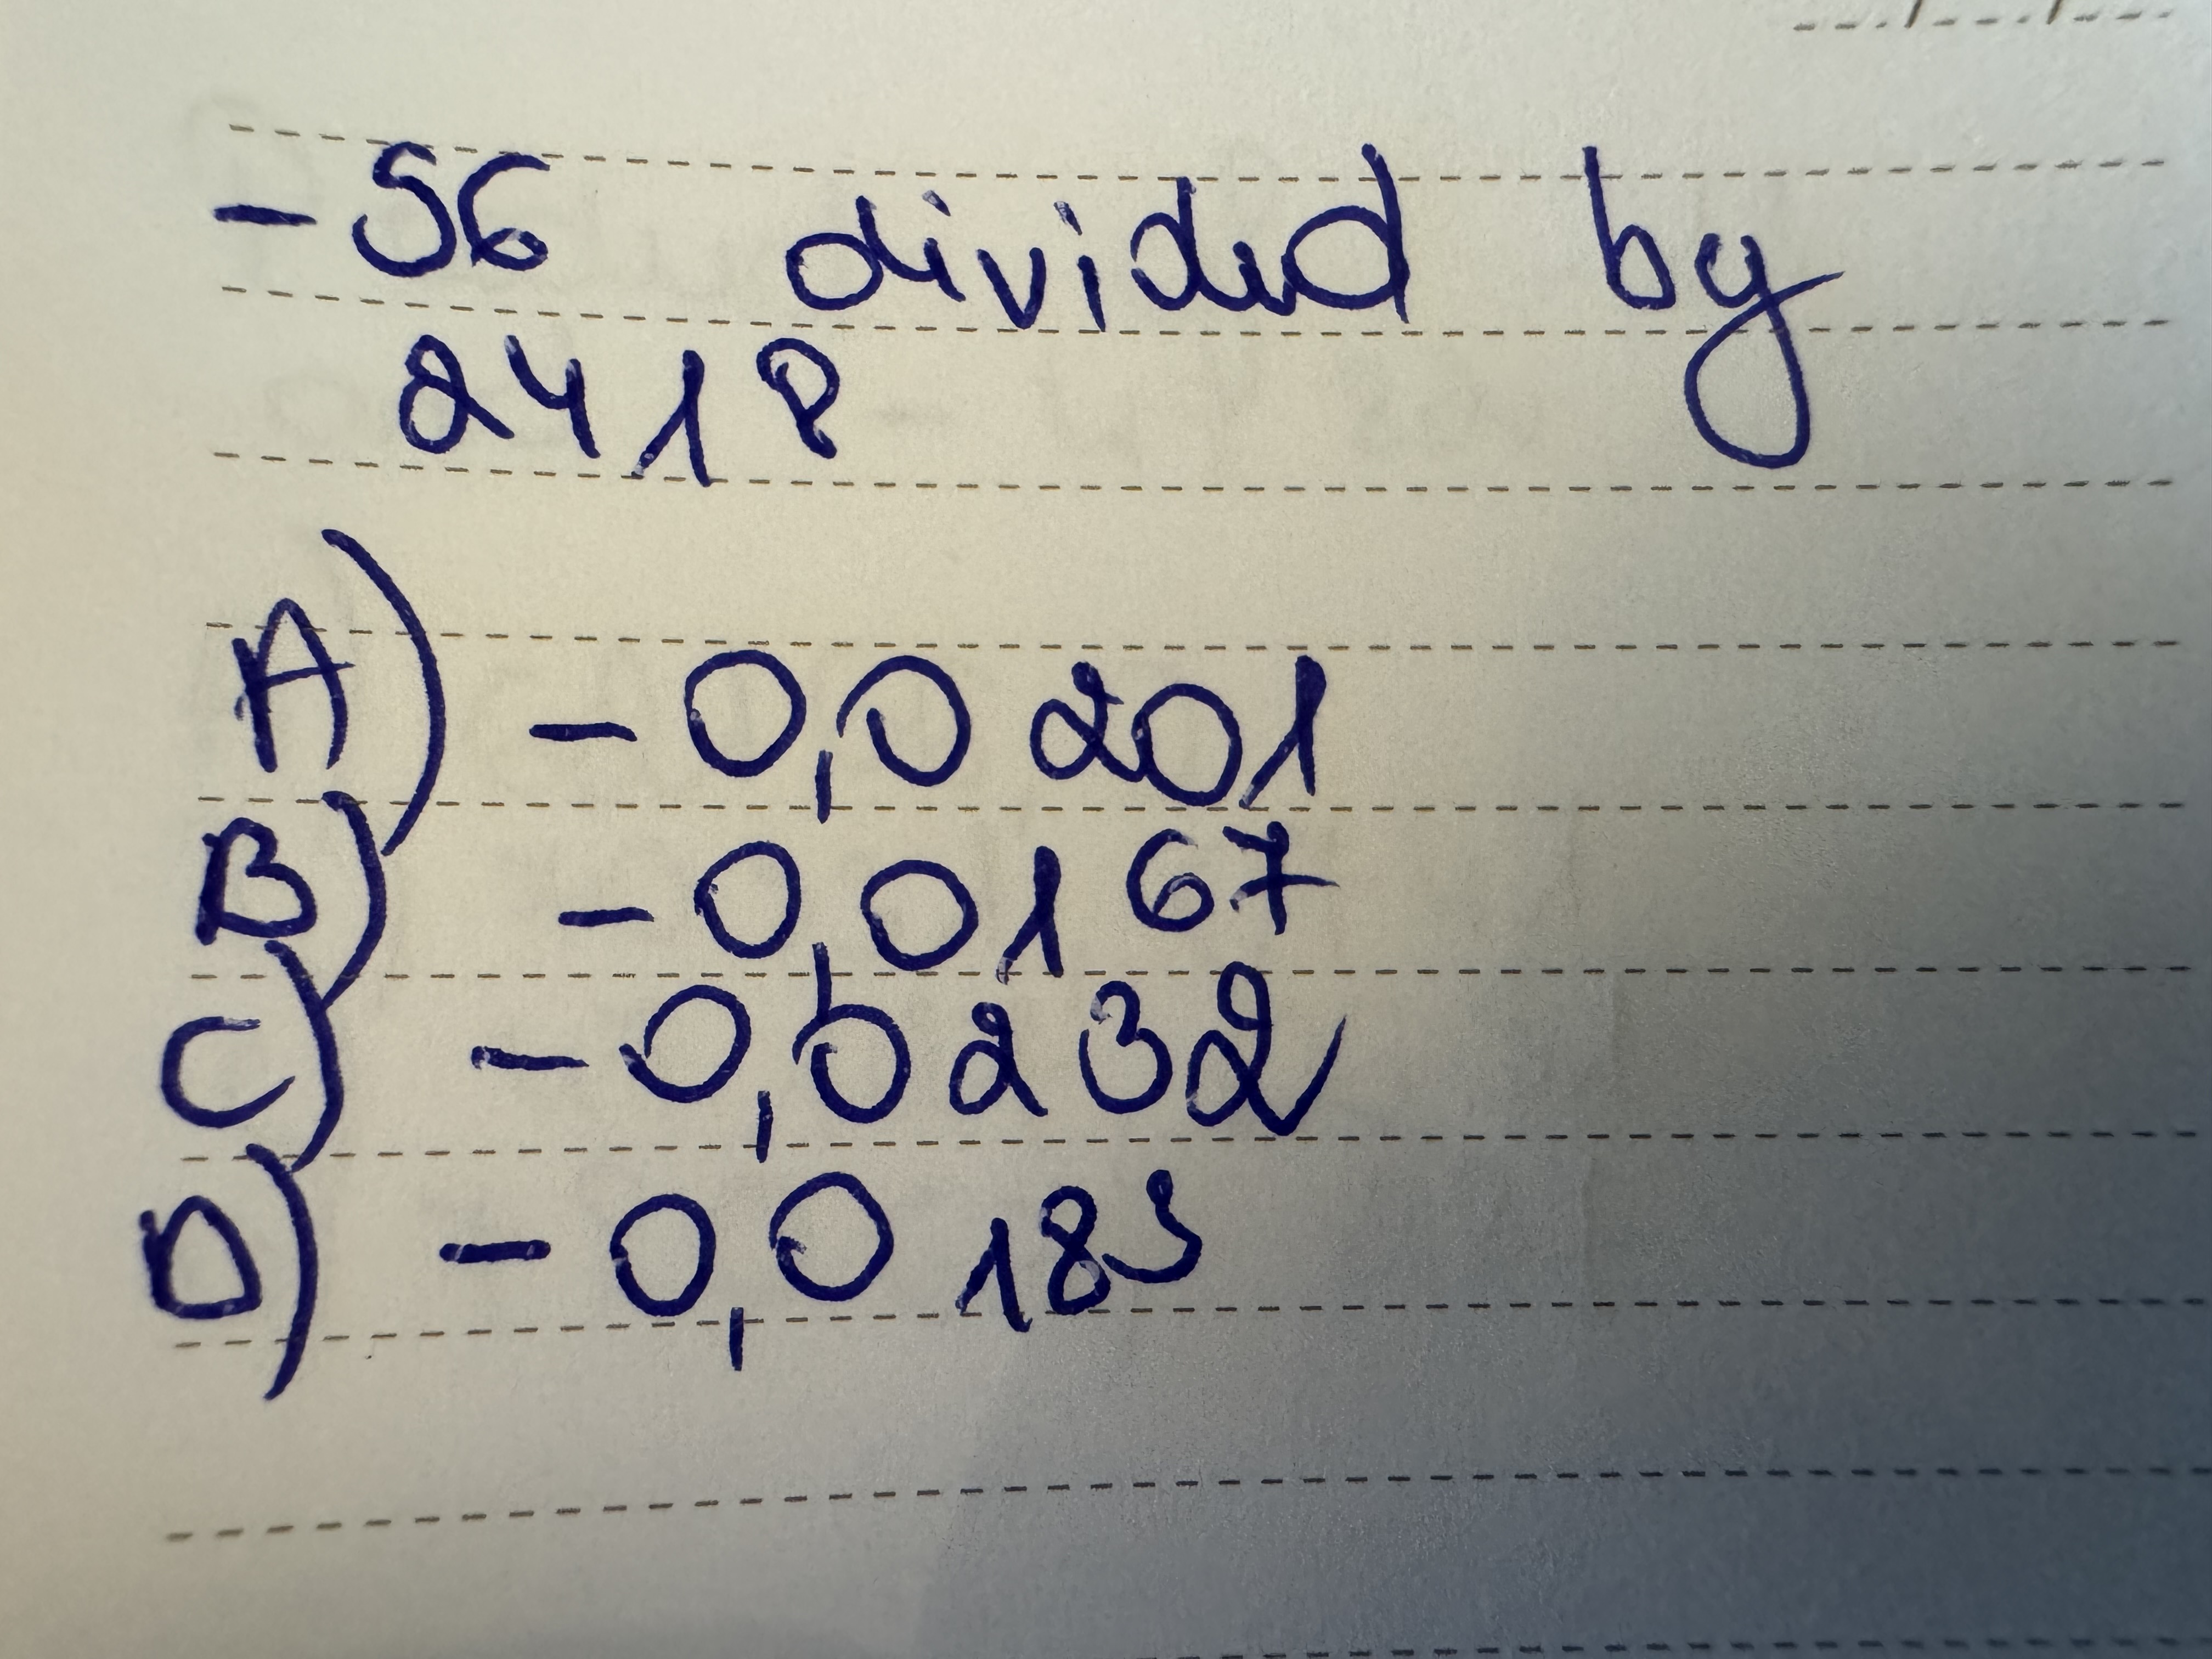 -56 divided by
2418
A) -0,0201
B) -0,0167
C) -0,0232
D) -0,0183